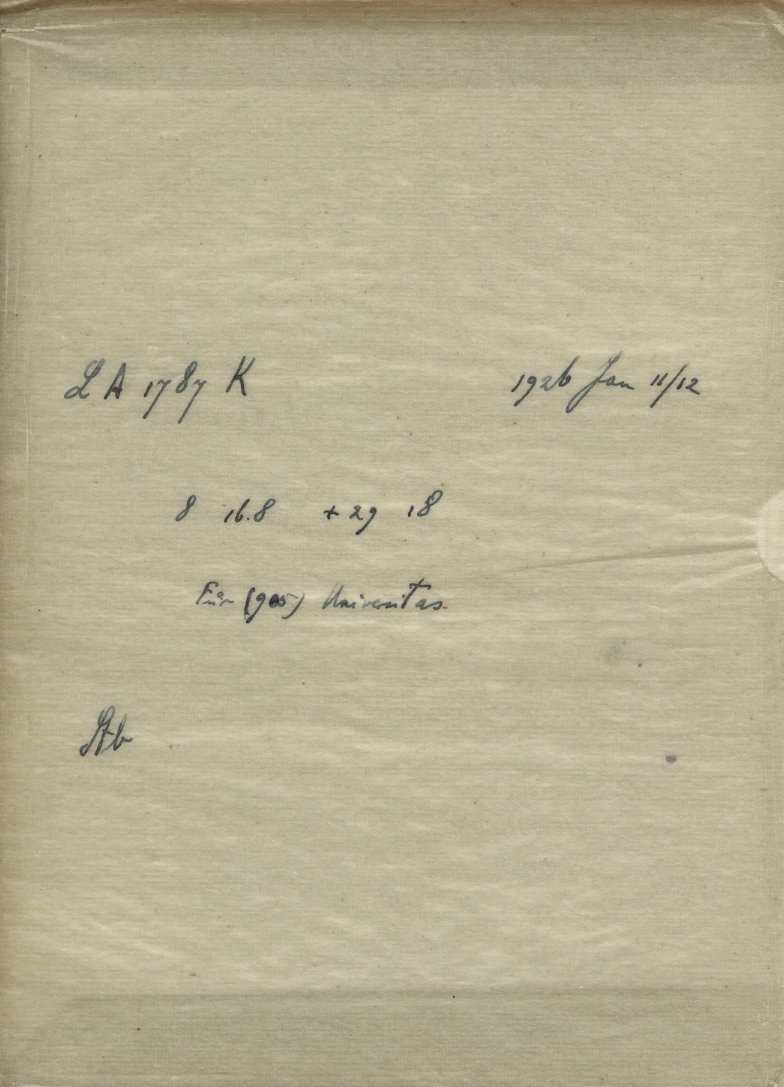 LA 1787 K 1926 Jan 11/12
8 16.8 +29 18
Für (905) Universitas.
Stb